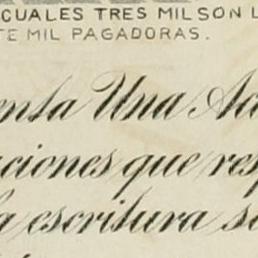 CUALES TRES MIL SON L
TE MIL PAGADORAS.
enta Una Ac
ciones que resp
a escritura so